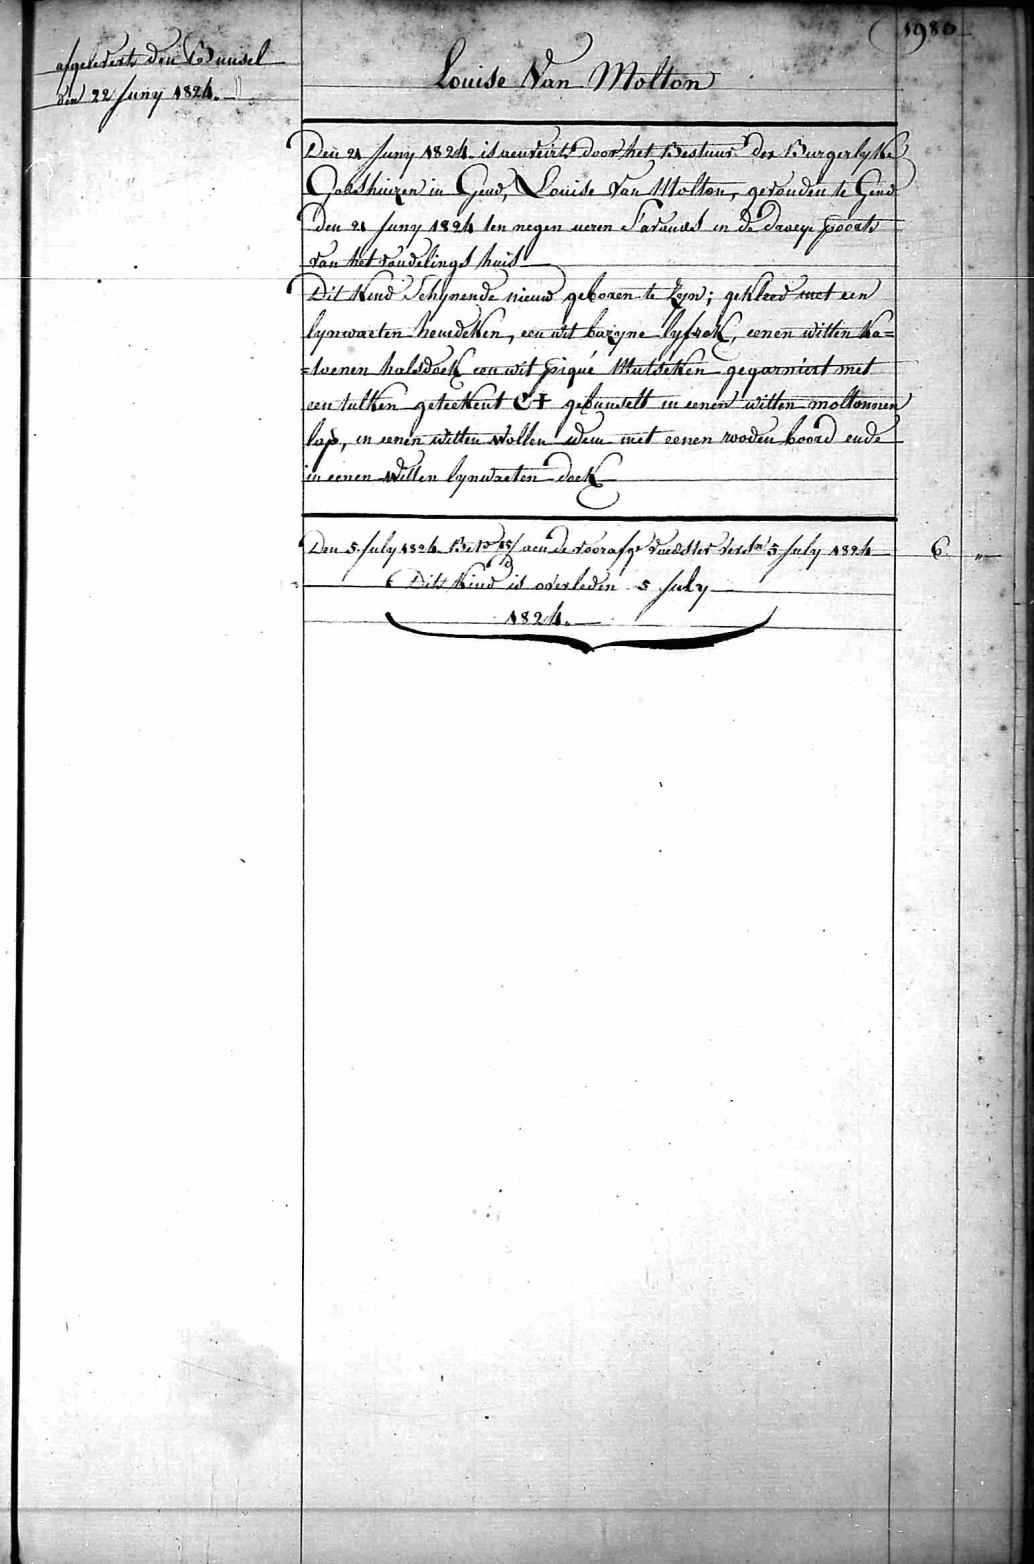 1980
afgeleverts den Bunsel
den 22 Juny 1824.
Louise Van Molton
Den 21 Juny 1824. is aenveirts door het Bestuur der Burgerlyke
Godshuizen in Gend, Louise Van Molton, gevonden te Gend
den 21 Juny 1824 ten negen ueren s'avonds in de draeye poorte
van het vondelings huis
Dit kind Schynende nieuw geboren te zyn; gekleed met een
lynwaeten hemdeken, een wit bazyne lyfrok, eenen witten ka=
=toenen halsdoek een wit piqué Mutseken gegarniert met
een tulken geteekent C+ gebunselt in eenen witten moltonnen
lap, in eenen witten wollen idem met eenen rooden boord ende
in eenen witten lynwaeten doek
Den 5 July 1824 aen de voorafge voedster 5 July 1824 6 "
Dits Kind is overleden 5 July
1824.